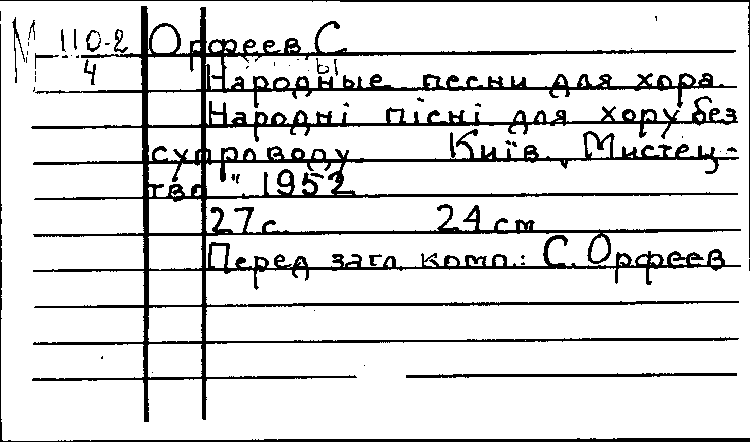 М 110-2 Орфеев С
4
Народные песни для хора
Народні пісні для хору без
супроводу. Київ „Мистец-
тво" 1952
27 с. 24 см
Перед загл. комп.: С. Орфеев